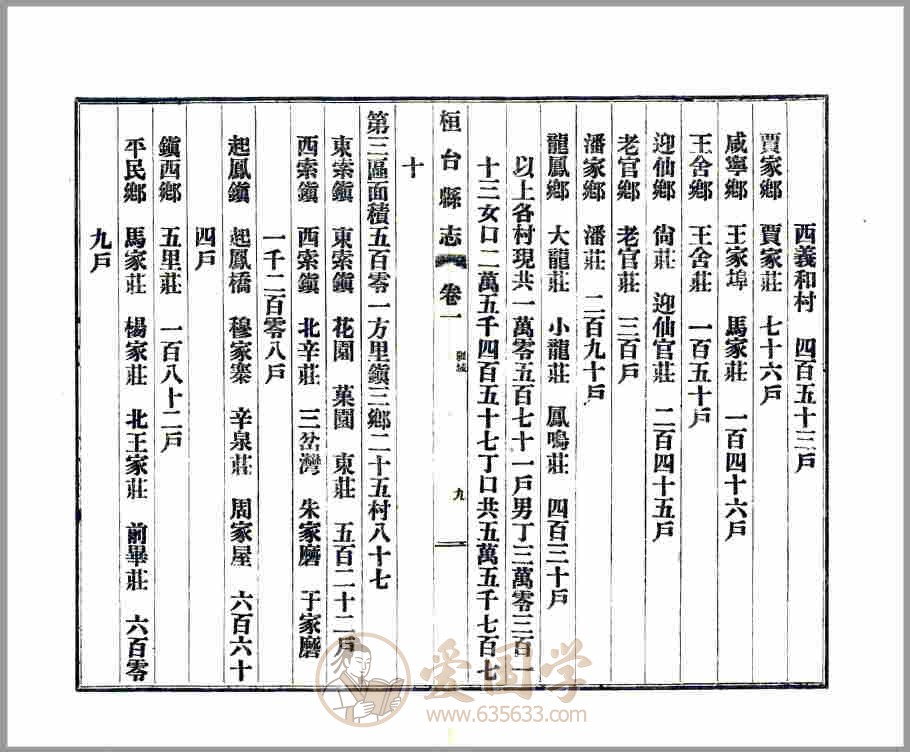 西義和村　四百五十三戶
賈家鄉　賈家莊　七十六戶
咸寧鄉　王家埠　馬家莊　一百四十六戶
王舍鄉　王舍莊　一百五十戶
迎仙鄉　尙莊　迎仙官莊　二百四十五戶
老官鄉　老官莊　三百戶
潘家鄉　潘莊　二百九十戶
龍鳳鄉　大龍莊　小龍莊　鳳鳴莊　四百三十戶
以上各村現共一萬零五百七十一戶男丁三萬零三百一
十三女口二萬五千四百五十七丁口共五萬五千七百七
桓台縣志　卷一　疆域　九
十
第三區面積五百零一方里鎮三鄉二十五村八十七
東索鎮　東索鎮　花園　菓園　東莊　五百二十二戶
西索鎮　西索鎮　北辛莊　三岔灣　朱家磨　于家磨
一千二百零八戶
起鳳鎮　起鳳橋　穆家寨　辛泉莊　周家屋　六百六十
四戶
鎮西鄉　五里莊　一百八十二戶
平民鄉　馬家莊　楊家莊　北王家莊　前畢莊　六百零
九戶
爱国学
www.635633.com